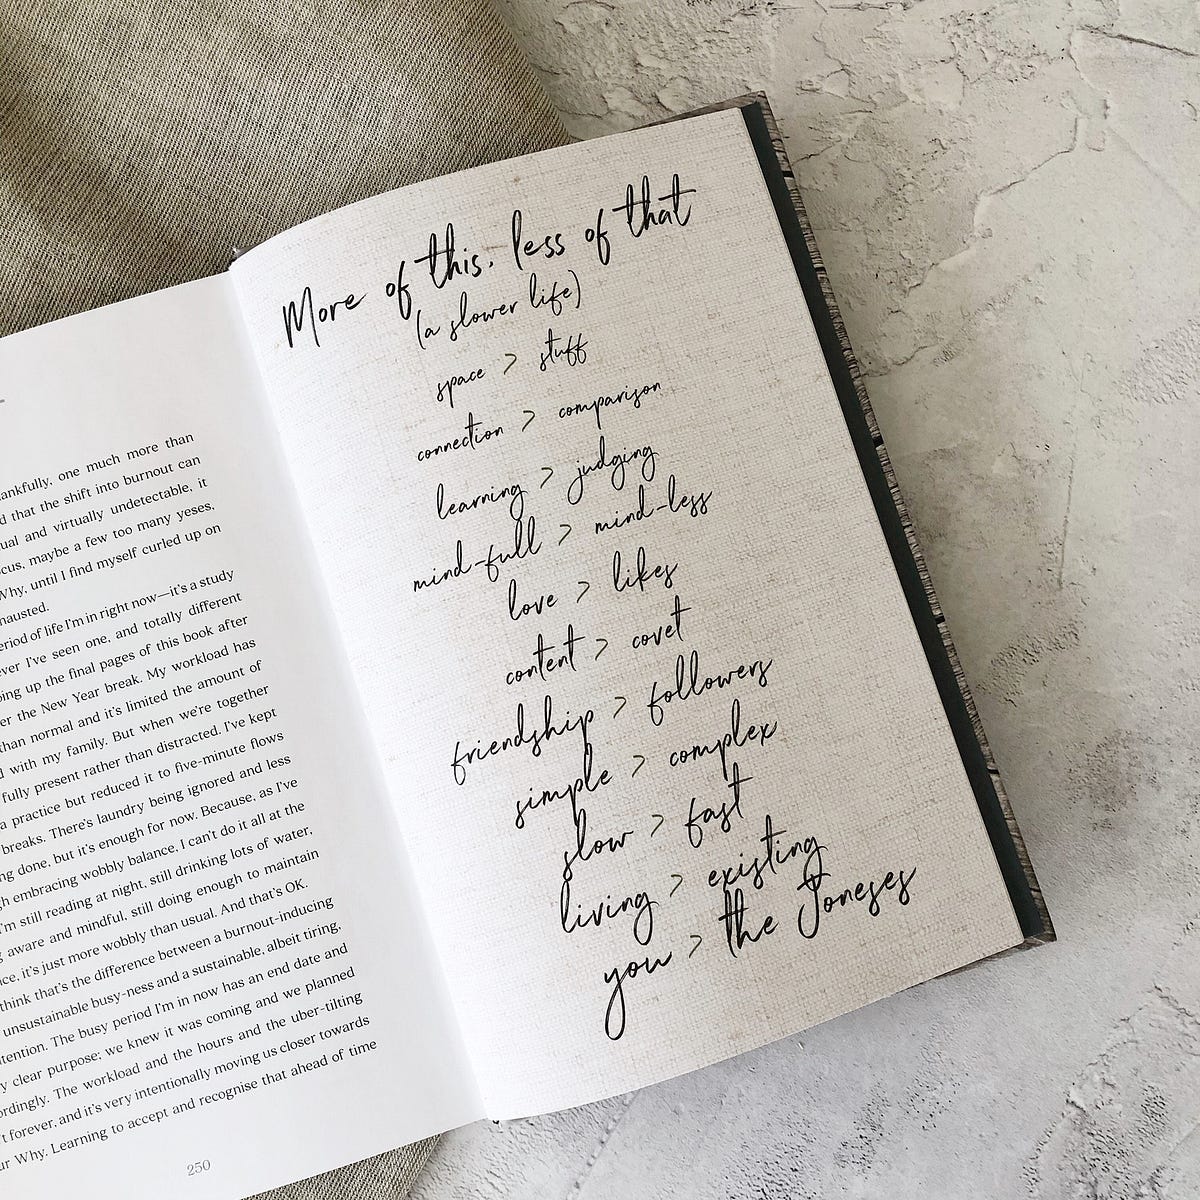 ankfully, one much more than
d that the shift into burnout can
ual and virtually undetectable, it
cus, maybe a few too many yeses,
Why, until I find myself curled up on
hausted.
eriod of life I'm in right now—it's a study
ever I've seen one, and totally different
ping up the final pages of this book after
er the New Year break. My workload has
than normal and it's limited the amount of
d with my family. But when we're together
fully present rather than distracted. I've kept
a practice but reduced it to five-minute flows
breaks. There's laundry being ignored and less
ng done, but it's enough for now. Because, as I've
gh embracing wobbly balance, I can't do it all at the
I'm still reading at night, still drinking lots of water,
g aware and mindful, still doing enough to maintain
nce, it's just more wobbly than usual. And that's OK.
think that's the difference between a burnout-inducing
unsustainable busy-ness and a sustainable, albeit tiring,
tention. The busy period I'm in now has an end date and
y clear purpose; we knew it was coming and we planned
ordingly. The workload and the hours and the uber-tilting
't forever, and it's very intentionally moving us closer towards
ur Why. Learning to accept and recognise that ahead of time
250
More of this, less of that
(a slower life)
space > stuff
connection > comparison
learning > judging
mind-full > mind-less
love > likes
content > covet
friendship > followers
simple > complex
slow > fast
living > existing
you > the Joneses